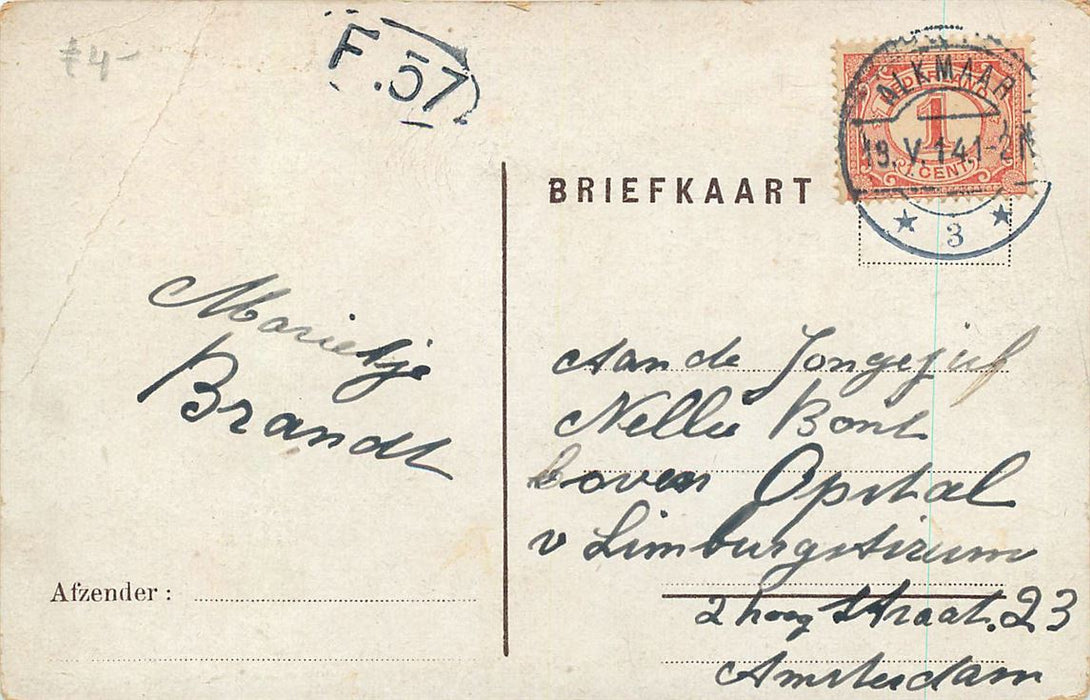 f4-
F.57
NEDERLAND
1
CENT
ALKMAAR
18.V.14.1-2N
3
BRIEFKAART
Marietje
Brandt
Aan de Jongejuf
Nellie Bont
boven Opstal
v Limburgstirum
2 hoog straat. 23
Amsterdam
Afzender :